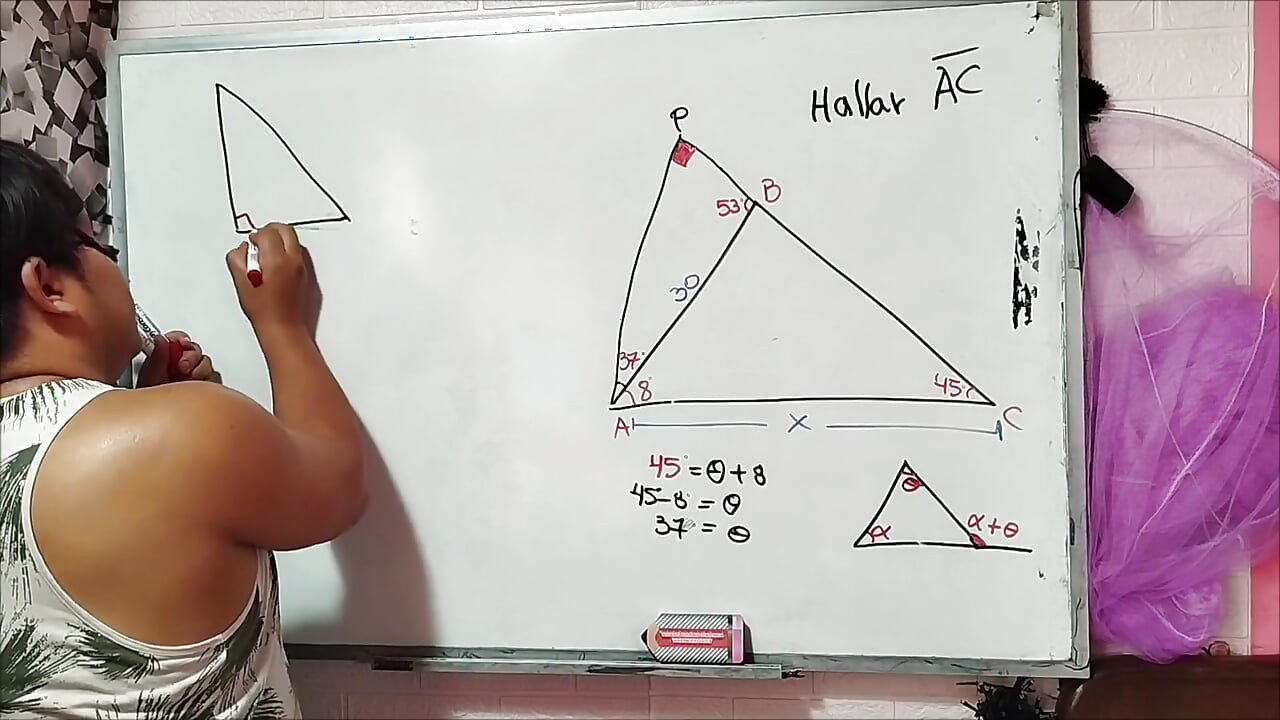 Hallar AC
P
B
53°
30
37°
8°
45°
A
x
C
45° = θ + 8
45° - 8° = θ
37° = θ
θ
α
α + θ